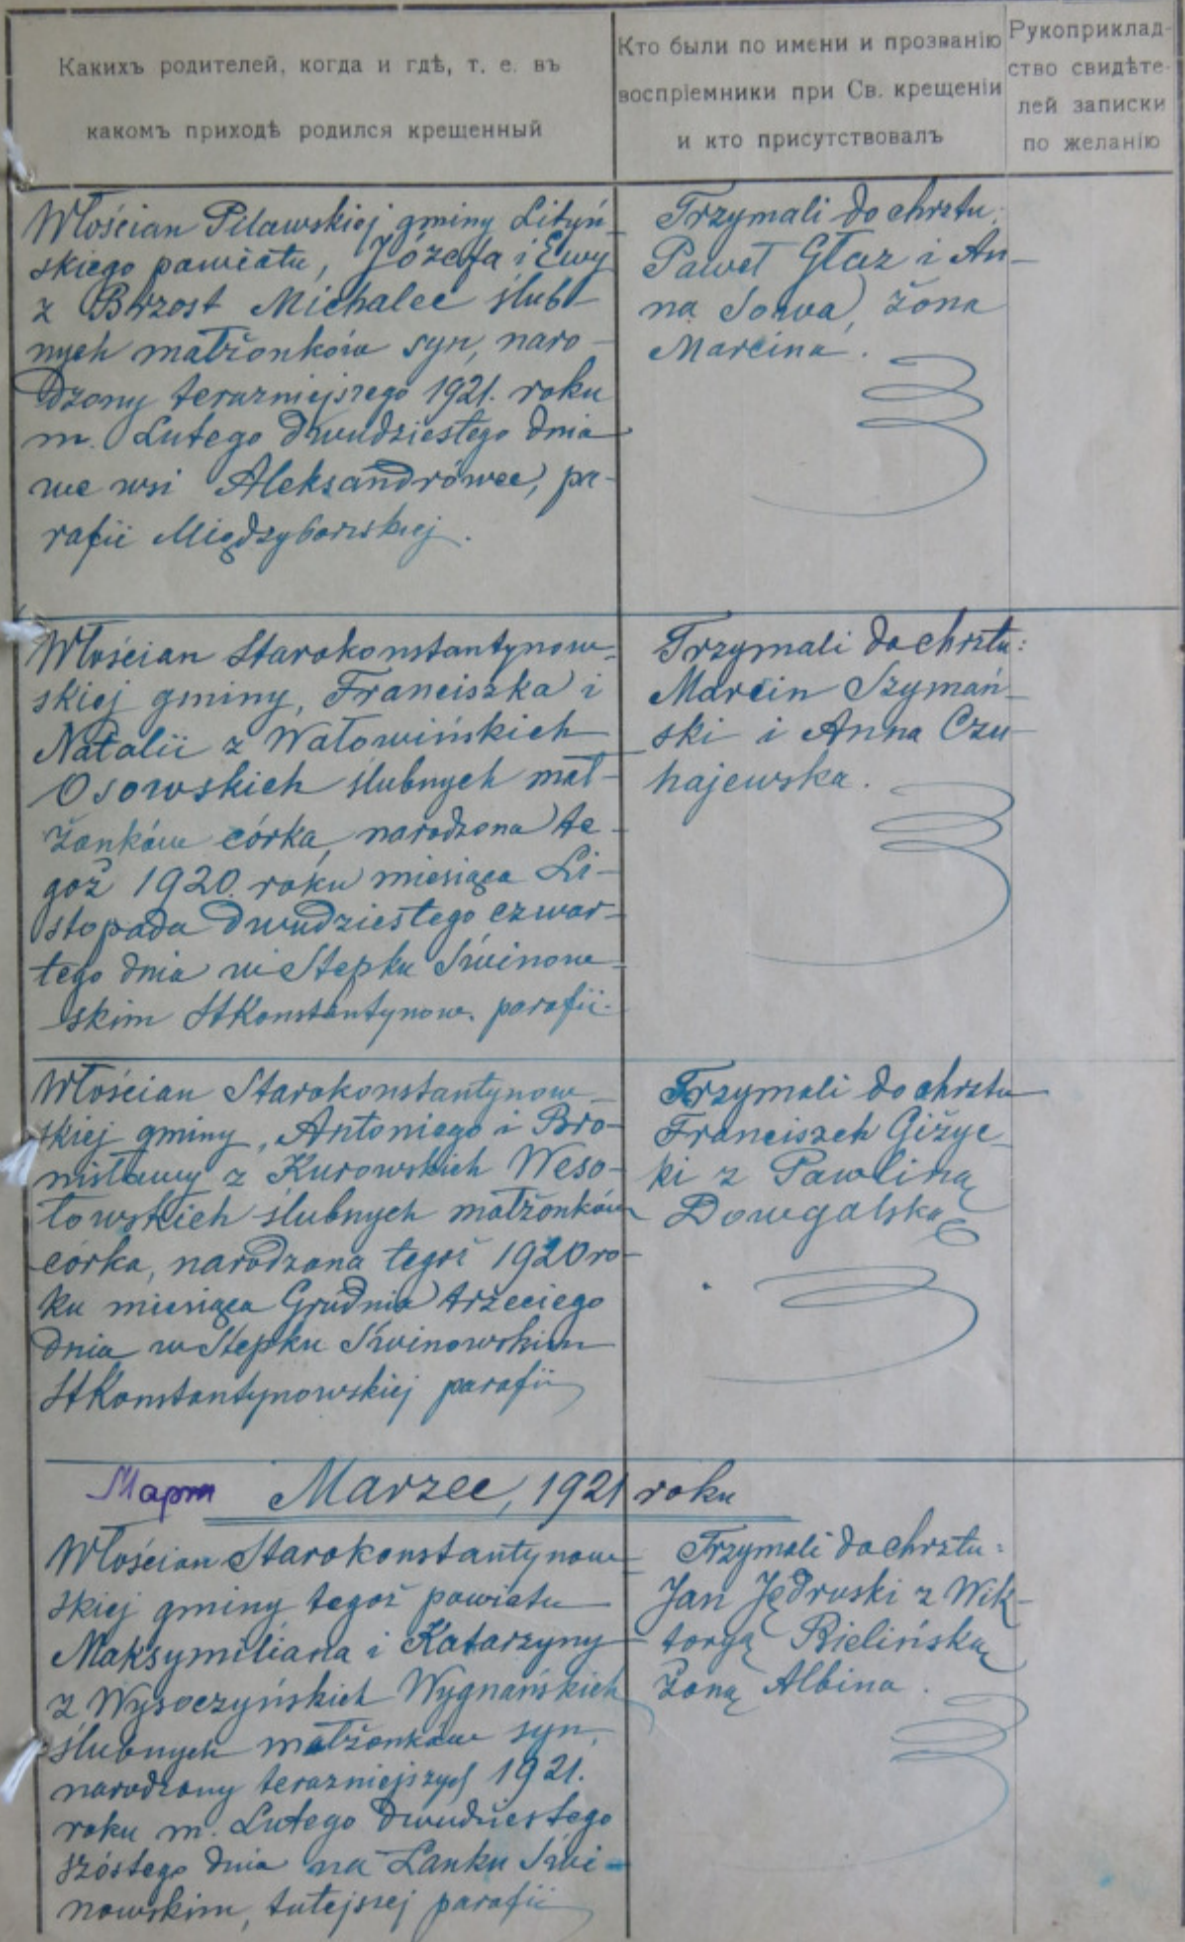 Какихъ родителей, когда и гдѣ, т. е. въ
какомъ приходѣ родился крещенный
Кто были по имени и прозванію
воспріемники при Св. крещеніи
и кто присутствовалъ
Рукоприклад-
ство свидѣте-
лей записки
по желанію
Włościan Pilawskiej gminy Lityń-
skiego powiatu, Józefa i Ewy
z Brzost Michalec ślub-
nych małżonków syn, naro-
dzony terazniejszego 1921. roku
m. Lutego dwudziestego dnia
we wsi Aleksandrówce, pa-
rafii Międzyborskiej.
Trzymali do chrztu:
Paweł Głaz i An-
na Sowa, żona
Marcina.
Włościan Starokonstantynow-
skiej gminy, Franciszka i
Natalii z Watowińkich
Osowskich ślubnych mał-
żonków córka, narodzona te-
goż 1920. roku miesiąca Li-
stopada dwudziestego czwar-
tego dnia w Stepku Świnow-
skim StKonstantynow. parafii.
Trzymali do chrztu:
Marcin Szymań-
ski i Anna Czu-
hajewska.
Włościan Starokonstantynow-
skiej gminy, Antoniego i Bro-
nisławy z Kurowskich Weso-
łowskich ślubnych małżonków
córka, narodzona tegoż 1920 ro-
ku miesiąca Grudnia trzeciego
dnia w Stepku Świnowskim
StKonstantynowskiej parafii
Trzymali do chrztu
Franciszek Giżyc-
ki z Pawliną
Dowgalską
Март Marzec, 1921 roku
Włościan Starokonstantynow-
skiej gminy tegoż powiatu
Maksymiliana i Katarzyny
z Wysoczyńskich Wygnańskich
ślubnych małżonków syn,
narodzony terazniejszych 1921.
roku m. Lutego dwudziestego
szóstego dnia na Łanku Świ-
nowskim, tutejszej parafii
Trzymali do chrztu:
Jan Jędruski z Wik-
torją Bielińską
żoną Albina.